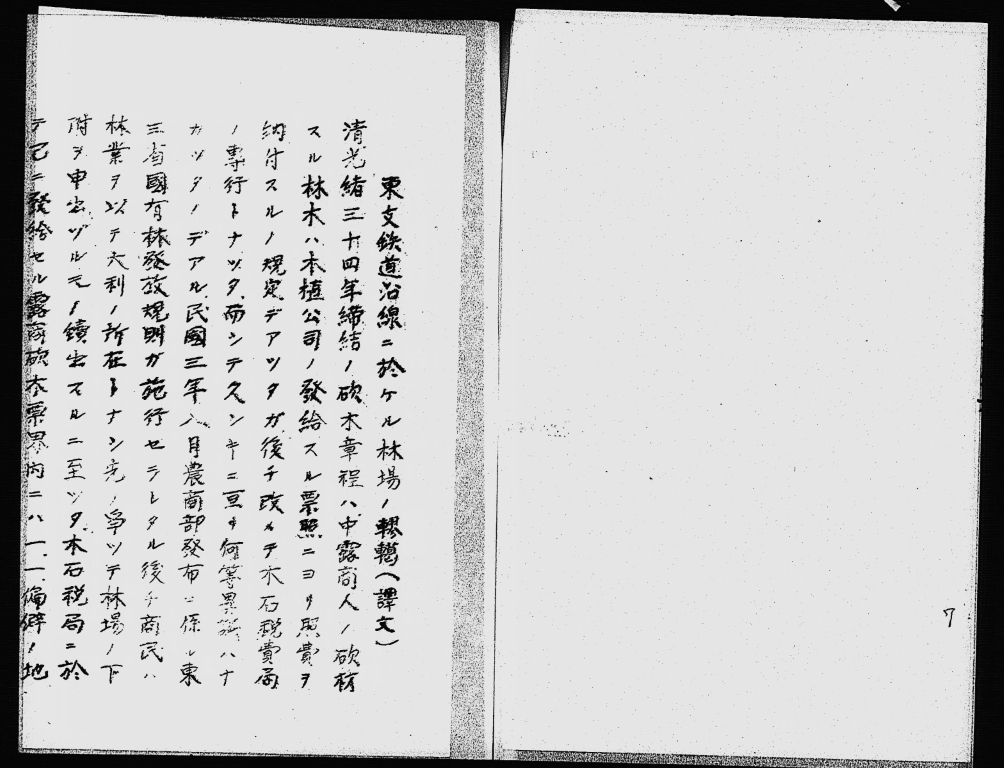 東支鉄道沿線ニ於ケル林場ノ轇轕(譯文)
清光緒三十四年締結ノ砍木章程ハ中露商人ノ砍採
スル林木ハ木植公司ノ發給スル票照ニヨリ照費ヲ
納付スルノ規定デアツタガ後チ改メテ木石税費局
ノ專行トナツタ而シテ久シキニ亘リ何等異議ハナ
カツタノデアル民國三年八月農商部發布ニ係ル東
三省國有林發放規則ガ施行セラレタル後チ商民ハ
林業ヲ以テ大利ノ所在トナシ先ノ爭ツテ林場ノ下
附ヲ申出ヅルモノ續出スルニ至ツタ木石税局ニ於
テ已ニ發給セル露商砍木票界内ニハ一、一、偏僻ノ地
7